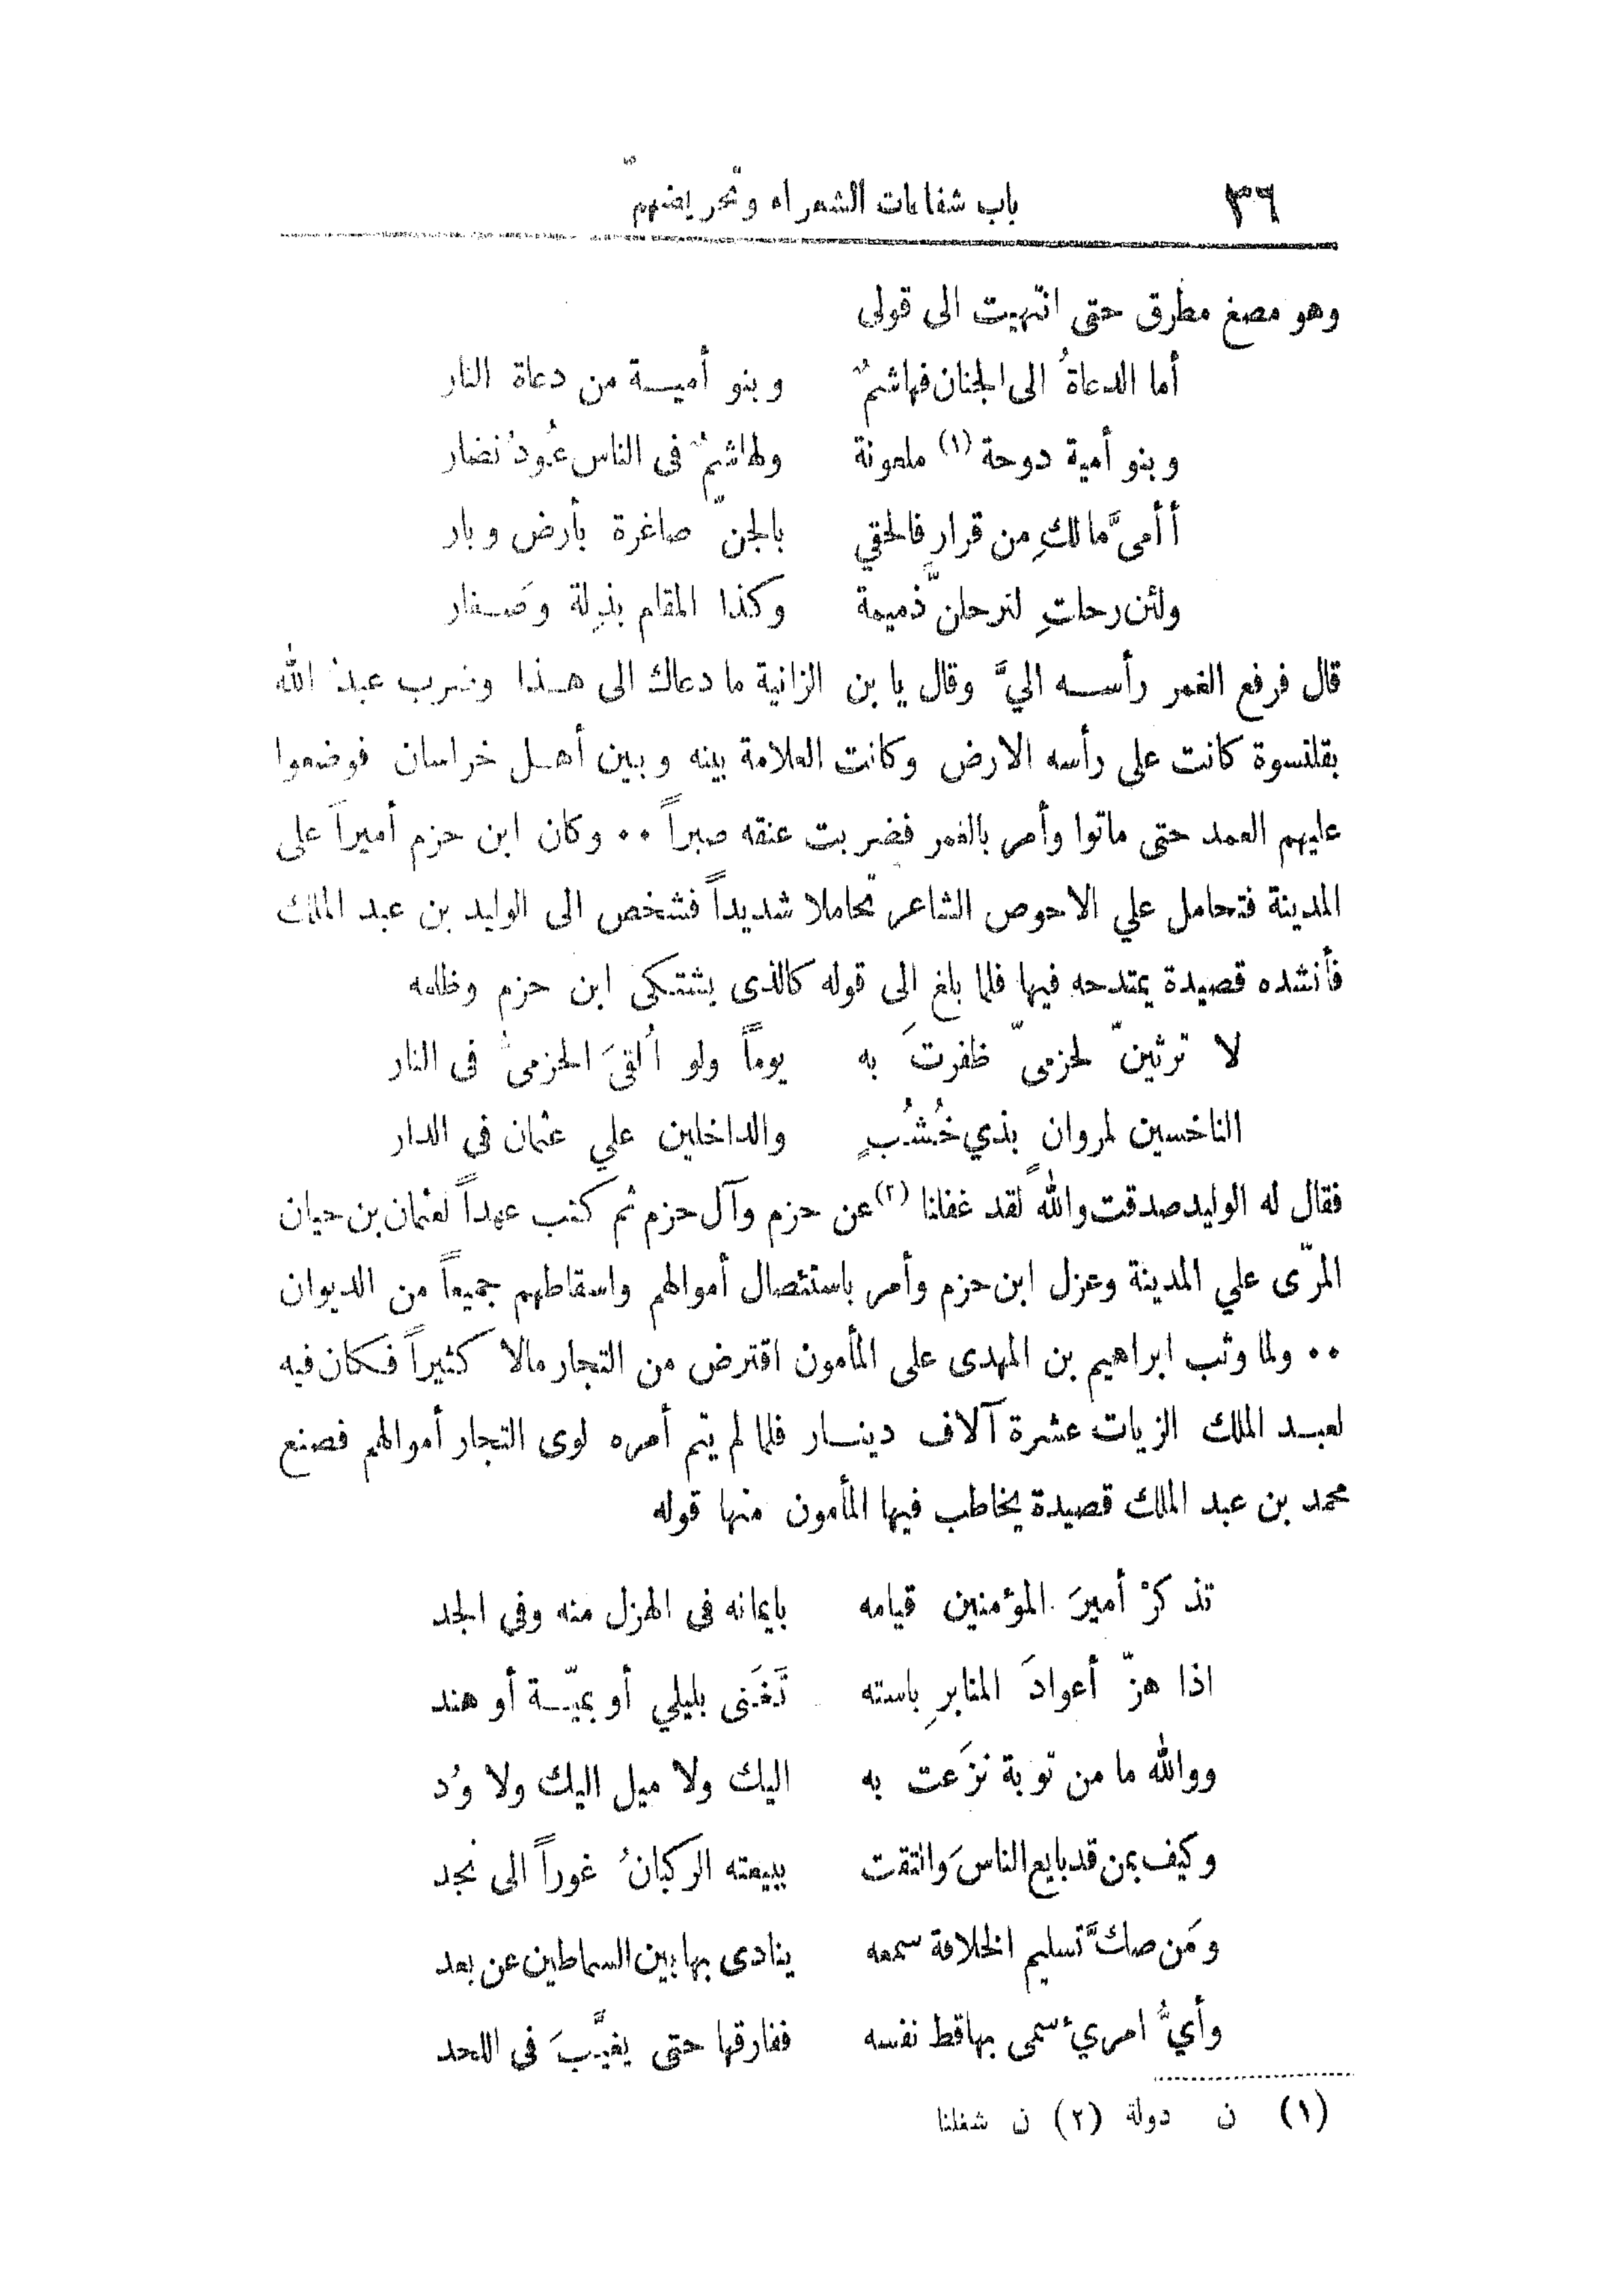 ٣٦ باب شفاعات الشعراء وتحريضهم
وهو مصغ مطرق حتى انتهيت الى قولى
أما الدعاةُ الى الجنان فهاشمٌ وبنو أميـة من دعاة النار
وبنو أمية دوحة (١) ملعونة ولهاشمٌ فى الناس عُودُ نضار
أأمىَّ مالكِ من قرارٍ فالحقي بالجنّ صاغرة بأرض وبار
ولئن رحلتِ لترحلنَّ ذميمة وكذا المقام بذِلة وصَـغار
قال فرفع الغمر رأسـه اليَّ وقال يا بن الزانية ما دعاك الى هـذا وضرب عبد الله
بقلنسوة كانت على رأسه الارض وكانت العلامة بينه وبين أهـل خراسان فوضعوا
عليهم العمد حتى ماتوا وأمر بالغمر فضربت عنقه صبراً ۰۰ وكان ابن حزم أميراً على
المدينة فتحامل علي الاحوص الشاعر تحاملا شديداً فشخص الى الوليد بن عبد الملك
فأنشده قصيدة يمتدحه فيها فلما بلغ الى قوله كالذى يشتكى ابن حزم وظلمه
لا ترثينّ لحزمىّ ظفرتَ به يوماً ولو أُلقىَ الحزمىُّ فى النار
الناخسين لمروان بذي خُشُبٍ والداخلين علي عثمان فى الدار
فقال له الوليد صدقت والله لقد غفلنا (٢) عن حزم وآل حزم ثم كتب عهداً لعثمان بن حيان
المرّى علي المدينة وعزل ابن حزم وأمر باستئصال أموالهم واسقاطهم جميعاً من الديوان
۰۰ ولما وثب ابراهيم بن المهدى على المأمون اقترض من التجار مالا كثيراً فكان فيه
لعبـد الملك الزيات عشرة آلاف دينـار فلما لم يتم أمره لوى التجار أموالهم فصنع
محمد بن عبد الملك قصيدة يخاطب فيها المأمون منها قوله
تذكرْ أميرَ المؤمنين قيامه بايمانه فى الهزل منه وفي الجد
اذا هزّ أعوادَ المنابرِ باسته تَغَنى بليلي أو بميّـة أو هند
ووالله ما من توبة نزَعت به اليك ولا ميل اليك ولا وُد
وكيف بمن قد بايع الناسَ والتقت ببيعته الركبانُ غوراً الى نجد
ومَن صكَّ تسليم الخلافة سمعه ينادى بها بين السماطين عن بعد
وأيُّ امريءٍ سمى بها قط نفسه ففارقها حتى يغيَّبَ فى اللحد
(١) ن دولة (٢) ن شغلنا